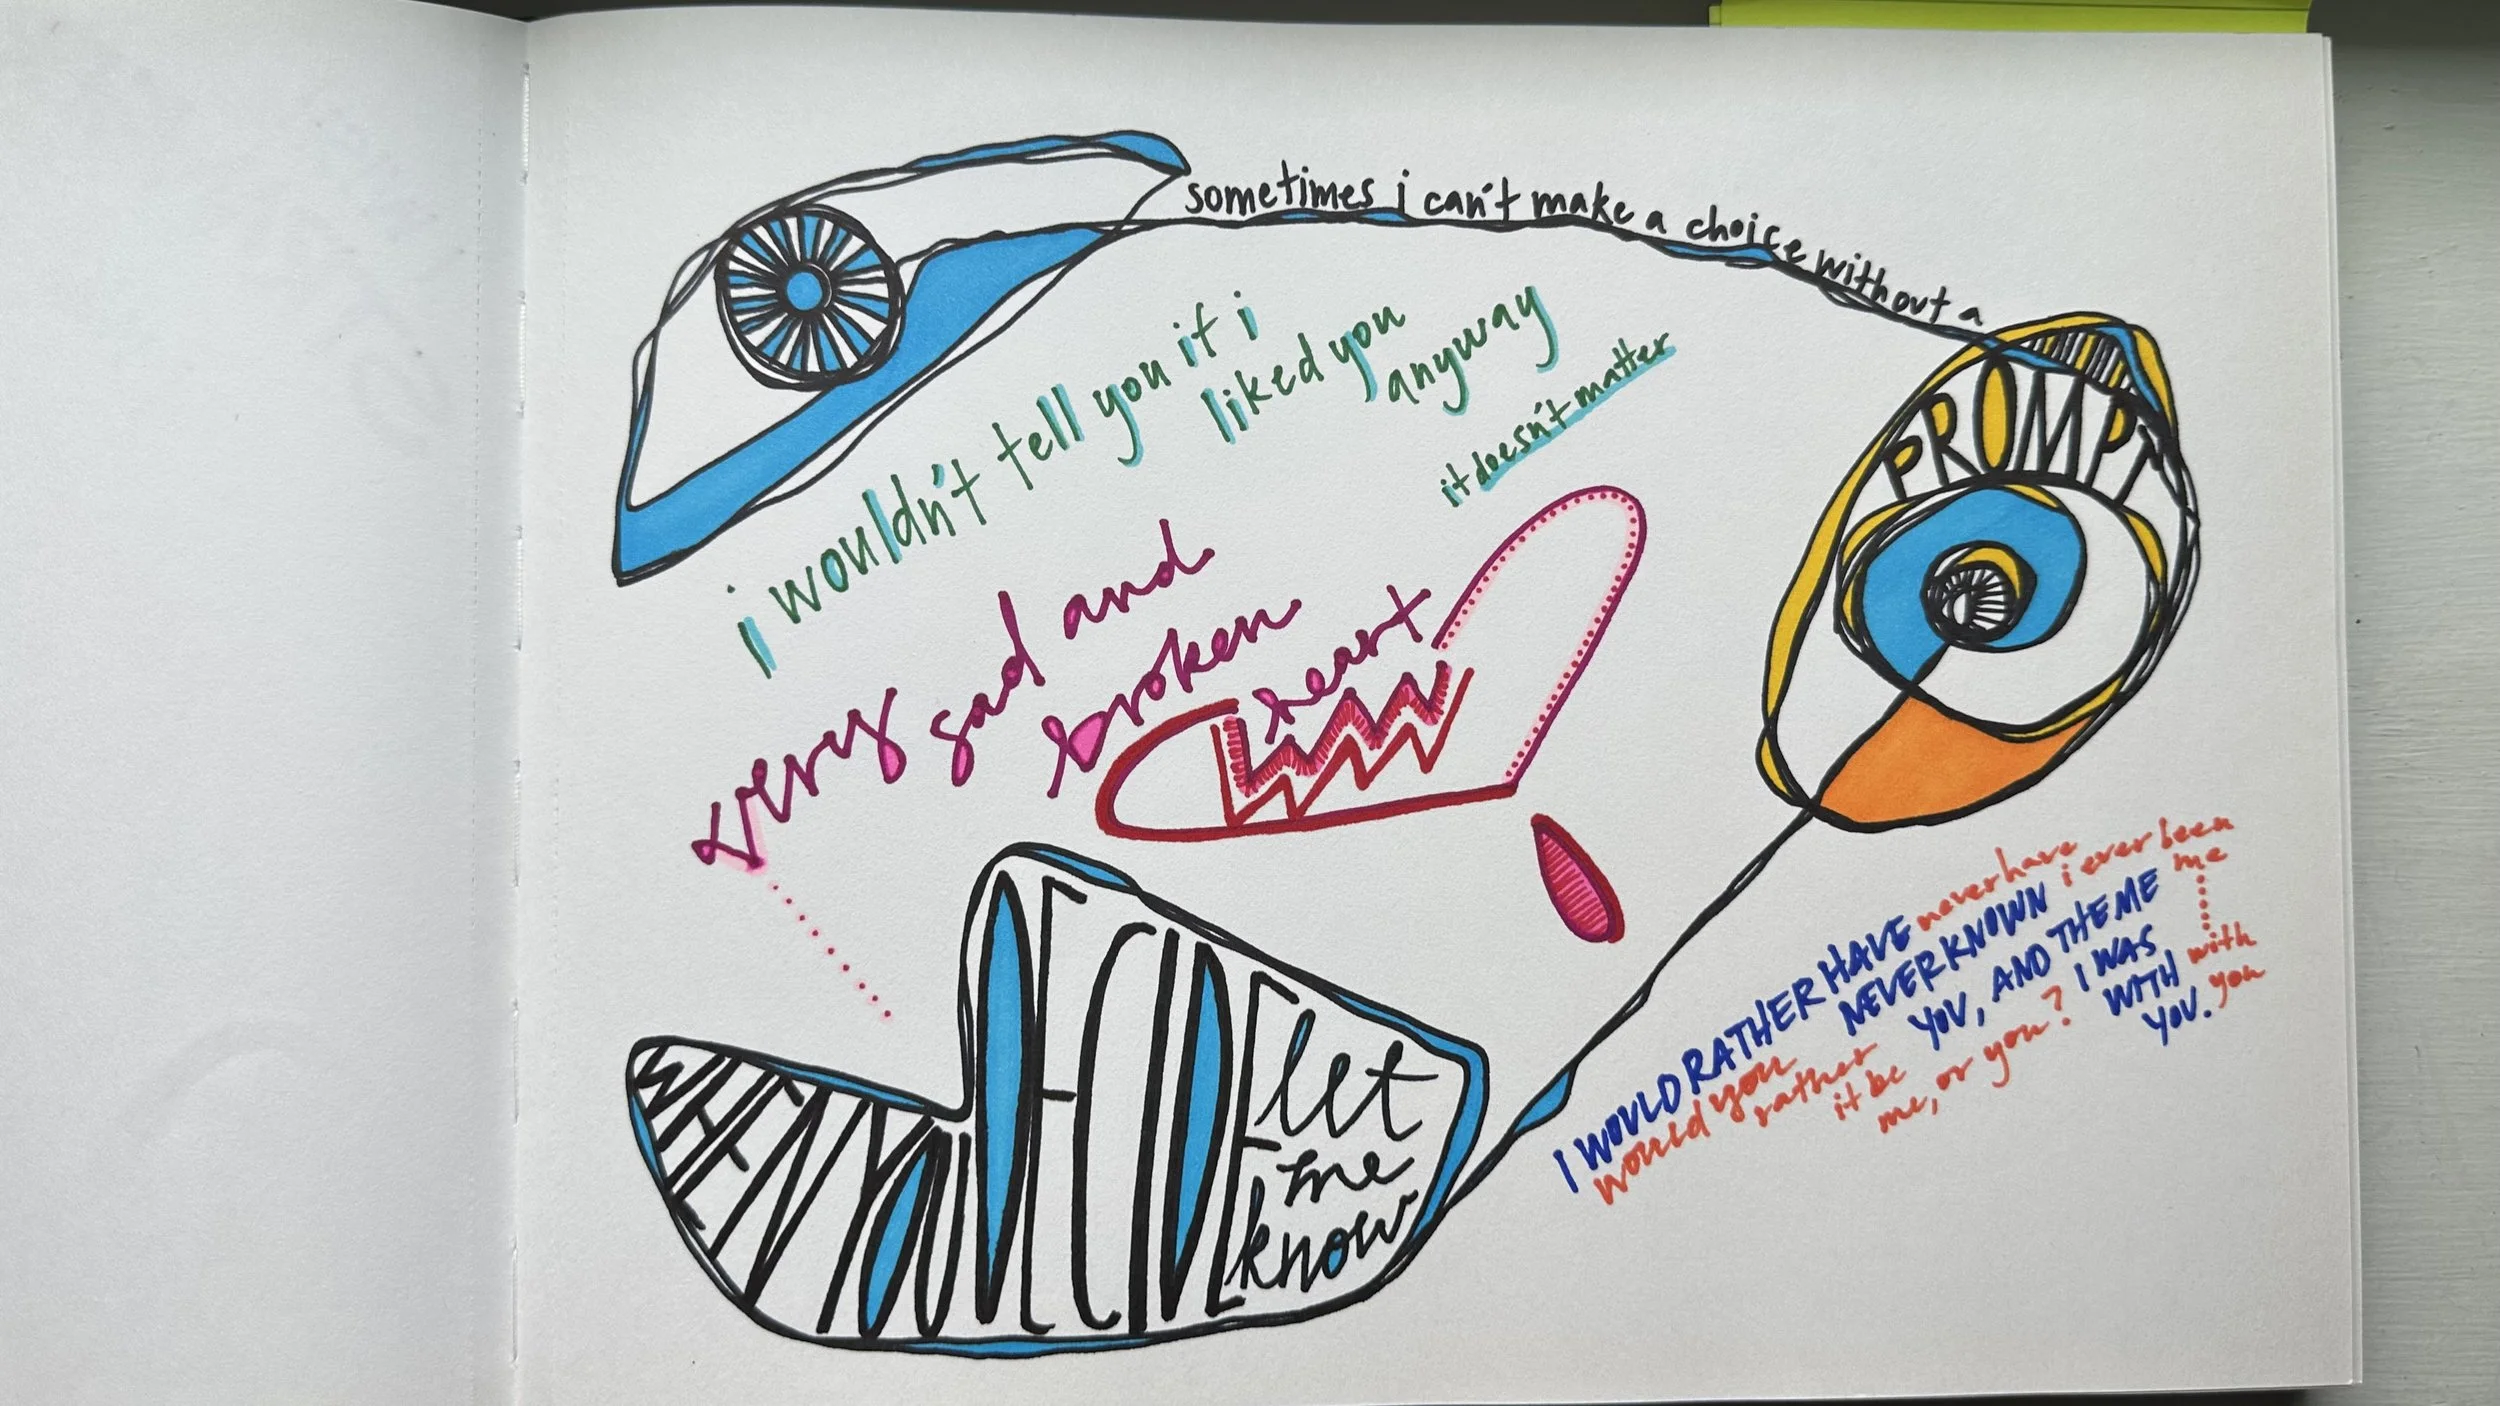 sometimes i can't make a choice without a
PROMPT
i wouldn't tell you if i
liked you
anyway
it doesn't matter
very sad and
broken
heart
WHEN YOU DECIDE
let
me
know
I WOULD RATHER HAVE
NEVER KNOWN
YOU, AND THE ME
I WAS
WITH
YOU.
never have
i ever been
me
with
you
would you
rather
it be
me, or you?